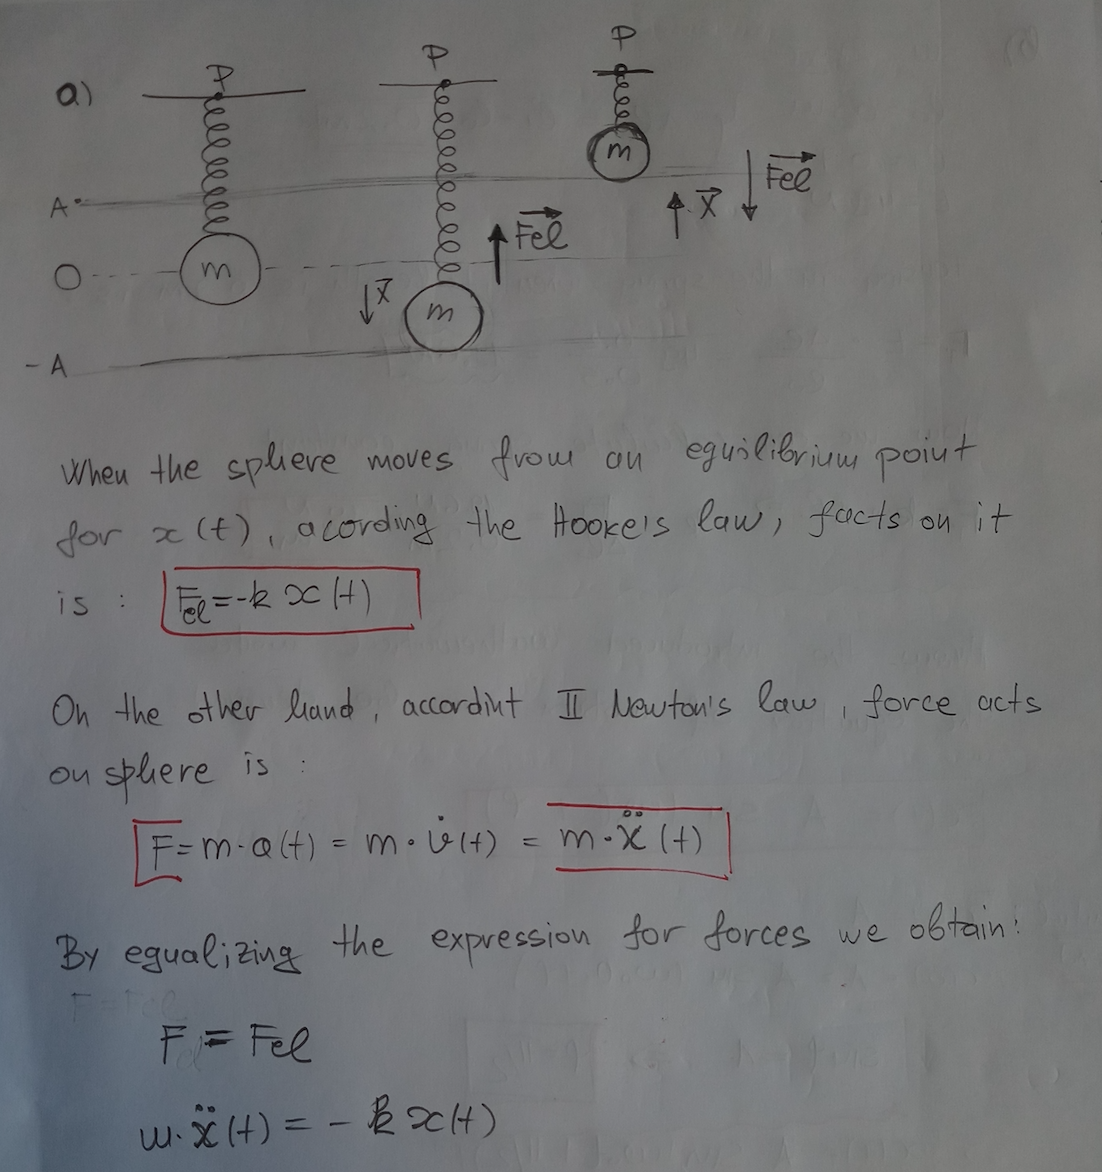 a)
P
P
P
A
O
- A
m
m
m
x
Fel
x
Fel
When the sphere moves from an equilibrium point
for x(t), acording the Hooke's law, facts on it
is : Fel=-k x(t)
On the other hand, accordint II Newton's law, force acts
on sphere is :
F=m·a(t) = m·v̇(t) = m·ẍ(t)
By equalizing the expression for forces we obtain:
F = Fel
m·ẍ(t) = - k x(t)